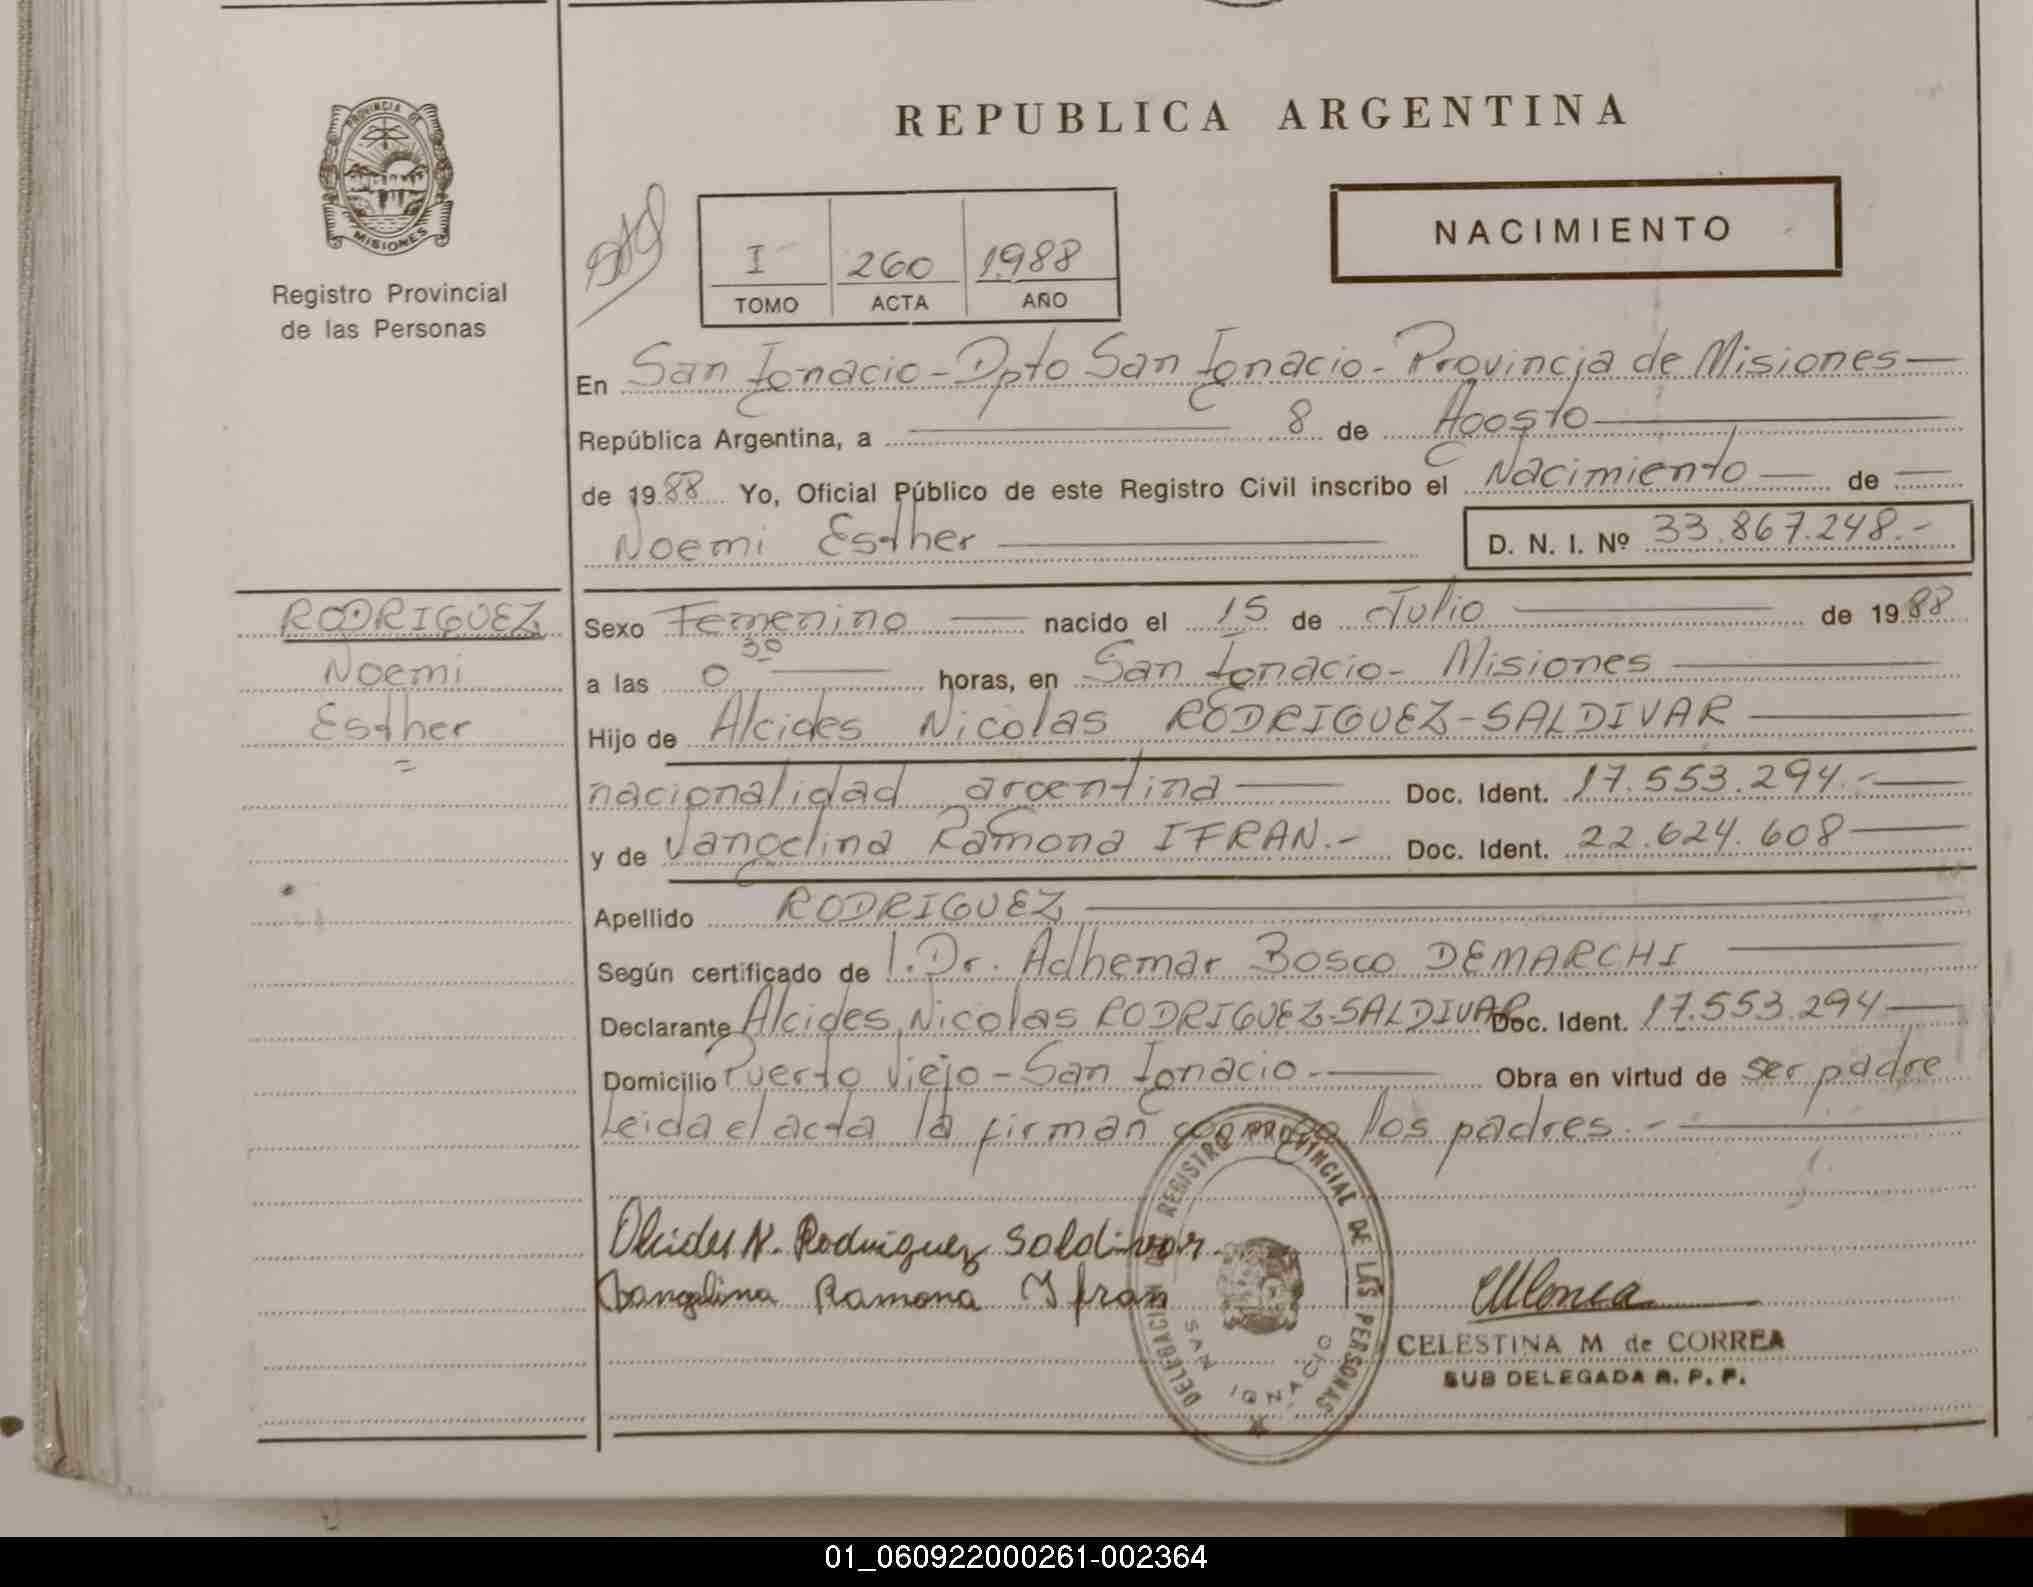 PROVINCIA DE
MISIONES
Registro Provincial
de las Personas
REPUBLICA ARGENTINA
NACIMIENTO
I 260 1988
TOMO ACTA AÑO
En San Ignacio - Dpto San Ignacio - Provincia de Misiones
República Argentina, a 8 de Agosto
de 1988 Yo, Oficial Público de este Registro Civil inscribo el Nacimiento de
Noemi Esther D. N. I. Nº 33.867.248.-
RODRIGUEZ
Noemi
Esther
Sexo Femenino nacido el 15 de Julio de 1988
a las 0 30 horas, en San Ignacio - Misiones
Hijo de Alcides Nicolas RODRIGUEZ-SALDIVAR
nacionalidad argentina Doc. Ident. 17.553.294.-
y de Vangelina Ramona IFRAN.- Doc. Ident. 22.624.608
Apellido RODRIGUEZ
Según certificado de l. Dr. Adhemar Bosco DEMARCHI
Declarante Alcides Nicolas RODRIGUEZ-SALDIVAR Doc. Ident. 17.553.294
Domicilio Puerto Viejo - San Ignacio.- Obra en virtud de ser padre
Leida el acta la firman conmigo los padres.-
Alcides N. Rodriguez Saldivar
Vangelina Ramona Ifran
DELEGACION DE REGISTRO PROVINCIAL DE LAS PERSONAS
SAN IGNACIO
CELESTINA M de CORREA
SUB DELEGADA R. P. P.
01_060922000261-002364